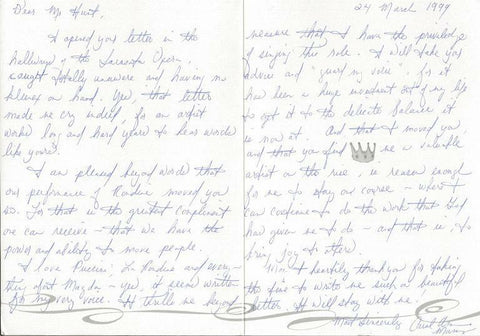 24 March 1999
Dear Mr Hunt,
I opened your letter in the
hallways of the Sarasota Opera,
caught totally unaware and having no
kleenex on hand. Yes, that letter
made me cry indeed, for an artist
works long and hard years to hear words
like yours.
I am pleased beyond words that
our performance of Rondine moved you
so. For that is the greatest compliment
one can receive – that we have the
power and ability to move people.
I love Puccini, La Rondine and every-
thing about Magda – yes, it seems written
for my very voice. It thrills me beyond
measure that I have the privilege
of singing this role. I will take your
advice and "guard my voice", for it
has been a huge investment out of my life
to get it to the delicate balance it
is now at. And that I moved you,
and that you find me a valuable
artist on the rise, is reason enough
for me to stay on course – where I
can continue to do the work that God
has given me to do – and that is, to
bring joy to others.
I heartily thank you for taking
the time to write me such a beautiful
letter. It will stay with me.
Most Sincerely,